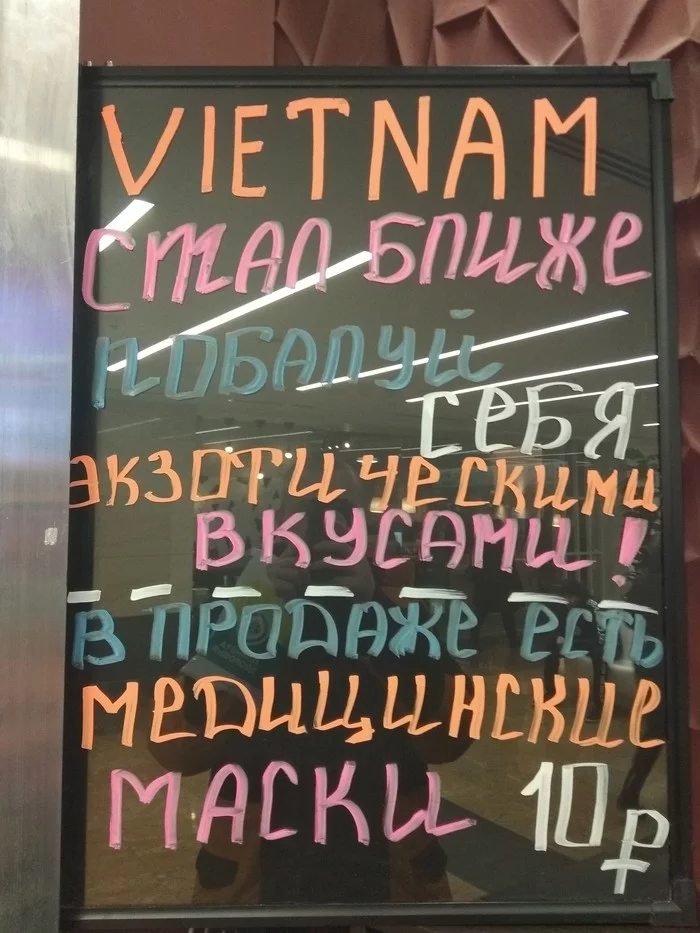 VIETNAM
СТАЛ БЛИЖЕ
ПОБАЛУЙ
СЕБЯ
ЭКЗОТИЧЕСКИМИ
ВКУСАМИ!
В ПРОДАЖЕ ЕСТЬ
МЕДИЦИНСКИЕ
МАСКИ 10₽